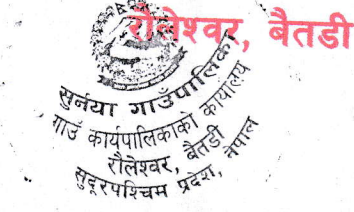 रौलेश्वर, बैतडी
सुर्नया गाउँपालिका
गाउँ कार्यपालिकाको कार्यालय
रौलेश्वर, बैतडी
सुदूरपश्चिम प्रदेश, नेपाल